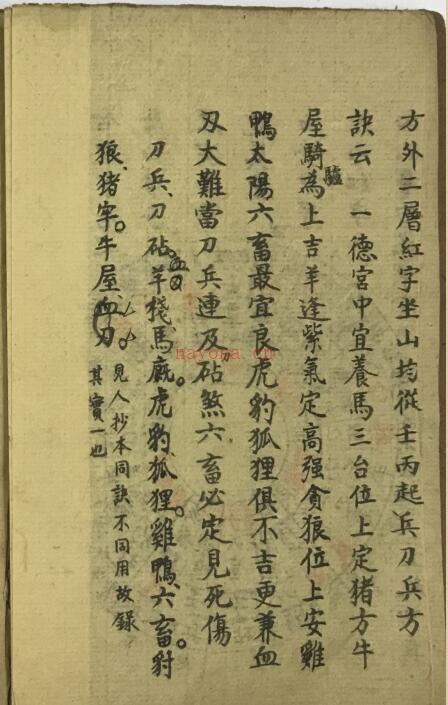 方外二層紅字坐山均從壬丙起兵刀兵方
訣云　一德宮中宜養馬三台位上定猪方牛
屋騎驢為上吉羊逢紫氣定高强貪狼位上安雞
鴨太陽六畜最宜良虎豹狐狸俱不吉更兼血
刄大難當刀兵連及砧煞六畜必定見死傷
刀兵、刀砧血刄羊棧、馬廐。虎豹、狐狸。雞鴨、六畜。豺
狼、猪牢。牛屋、血刀。
見人抄本同訣不同用故錄
其實一也
hayona.cn